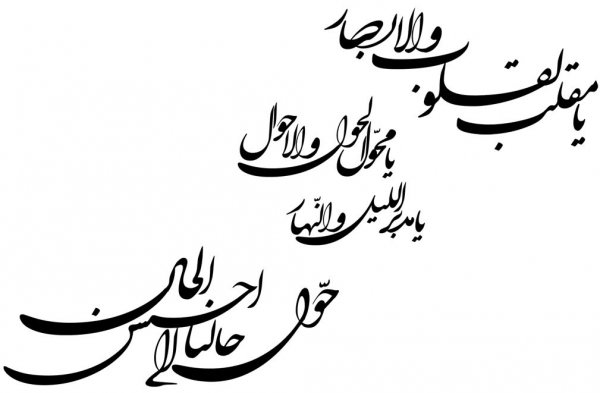 یا مقلب القلوب والابصار
یا محوّل الحول والاحوال
یا مدبر اللیل والنّهار
حوّل حالنا الی احسن الحال